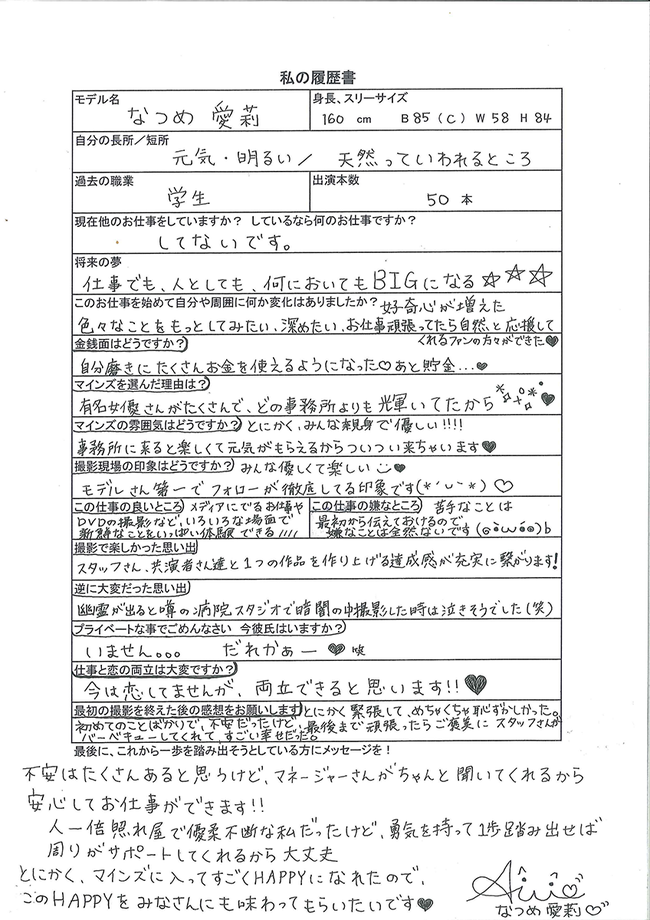 私の履歴書
モデル名
なつめ 愛莉
身長、スリーサイズ
160 cm B85 (C) W58 H84
自分の長所／短所
元気・明るい／ 天然っていわれるところ
過去の職業
学生
出演本数
50 本
現在他のお仕事をしていますか？ しているなら何のお仕事ですか？
してないです。
将来の夢
仕事でも、人としても、何においてもBIGになる☆☆☆
このお仕事を始めて自分や周囲に何か変化はありましたか？好奇心が増えた
色々なことをもっとしてみたい、深めたい、お仕事頑張ってたら自然と応援して
くれるファンの方々ができた♥
金銭面はどうですか？
自分磨きにたくさんお金を使えるようになった♡あと貯金...♥
マインズを選んだ理由は？
有名女優さんがたくさんで、どの事務所よりも輝いてたから♥
マインズの雰囲気はどうですか？とにかく、みんな親身で優しい!!!!
事務所に来ると楽しくて元気がもらえるからついつい来ちゃいます♥
撮影現場の印象はどうですか？みんな優しくて楽しい♥
モデルさん第一でフォローが徹底してる印象です(*´∪`*)♡
この仕事の良いところ メディアにでるお仕事や
DVDの撮影など、いろいろな場面で
新鮮なことをいっぱい体験できる!!!!
この仕事の嫌なところ 苦手なことは
最初から伝えておけるので
嫌なことは全然ないです(๑•̀ω•́๑)b
撮影で楽しかった思い出
スタッフさん、共演者さん達と1つの作品を作り上げる達成感が充実に繋がります!
逆に大変だった思い出
幽霊が出ると噂の病院スタジオで暗闇の中撮影した時は泣きそうでした(笑)
プライベートな事でごめんなさい 今彼氏はいますか？
いません。。。 だれかぁー♥笑
仕事と恋の両立は大変ですか？
今は恋してませんが、両立できると思います!!♥
最初の撮影を終えた後の感想をお願いします とにかく緊張して、めちゃくちゃ恥ずかしかった。
初めてのことばかりで、不安だったけど、最後まで頑張ったらご褒美にスタッフさんが
バーベキューしてくれて、すごい幸せだった。
最後に、これから一歩を踏み出そうとしている方にメッセージを！
不安はたくさんあると思うけど、マネージャーさんがちゃんと聞いてくれるから
安心してお仕事ができます!!
人一倍照れ屋で優柔不断な私だったけど、勇気を持って1歩踏み出せば
周りがサポートしてくれるから大丈夫
とにかく、マインズに入ってすごくHAPPYになれたので、
このHAPPYをみなさんにも味わってもらいたいです♥
Airi♡
なつめ愛莉♡